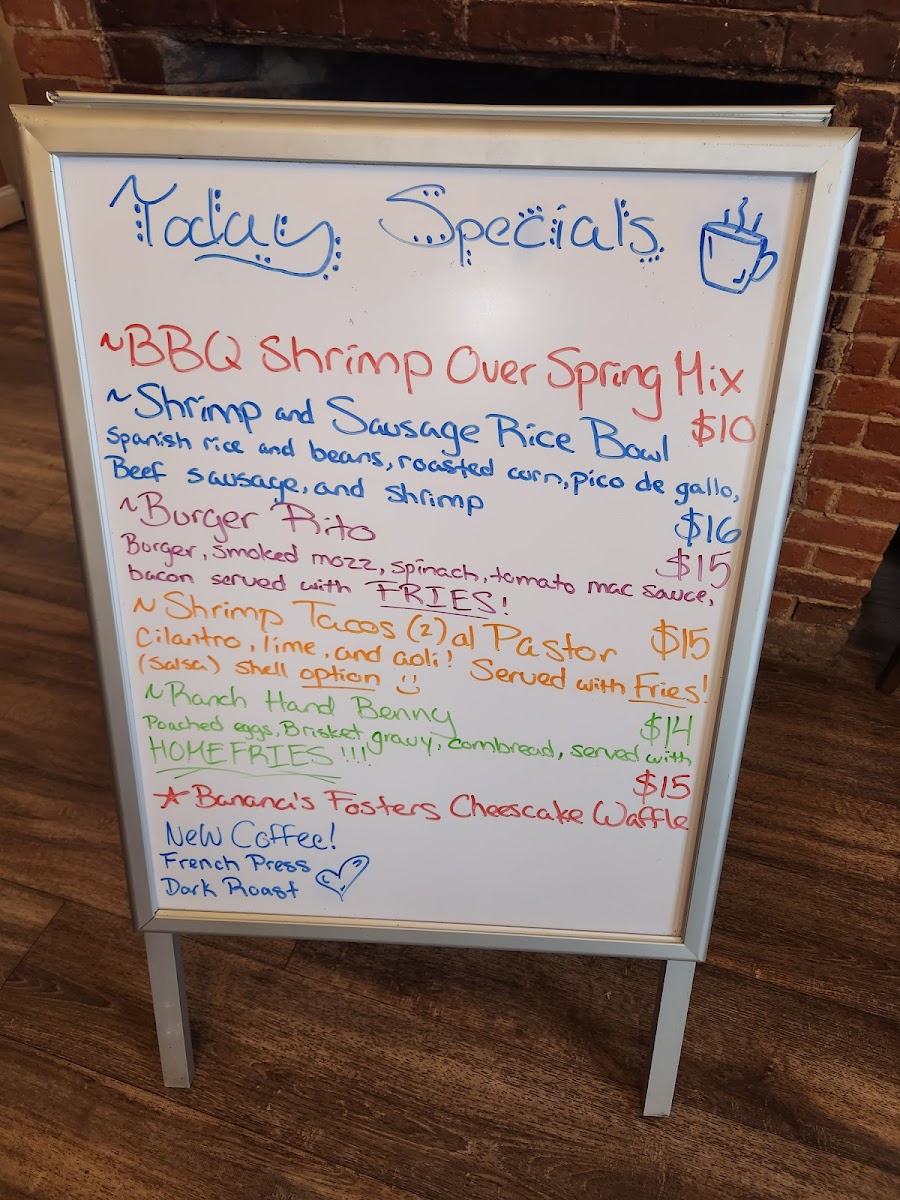 ~Today Specials
~BBQ Shrimp Over Spring Mix
$10
~Shrimp and Sausage Rice Bowl
Spanish rice and beans, roasted corn, pico de gallo,
Beef sausage, and shrimp
$16
~Burger Rito $15
Burger, smoked mozz, spinach, tomato mac sauce,
bacon served with FRIES!
~Shrimp Tacos (2) al Pastor $15
Cilantro, lime, and aoli! Served with Fries!
(salsa) shell option
~Ranch Hand Benny $14
Poached eggs, Brisket gravy, cornbread, served with
HOMEFRIES!!!
$15
Banana's Fosters Cheescake Waffle
New Coffee!
French Press
Dark Roast